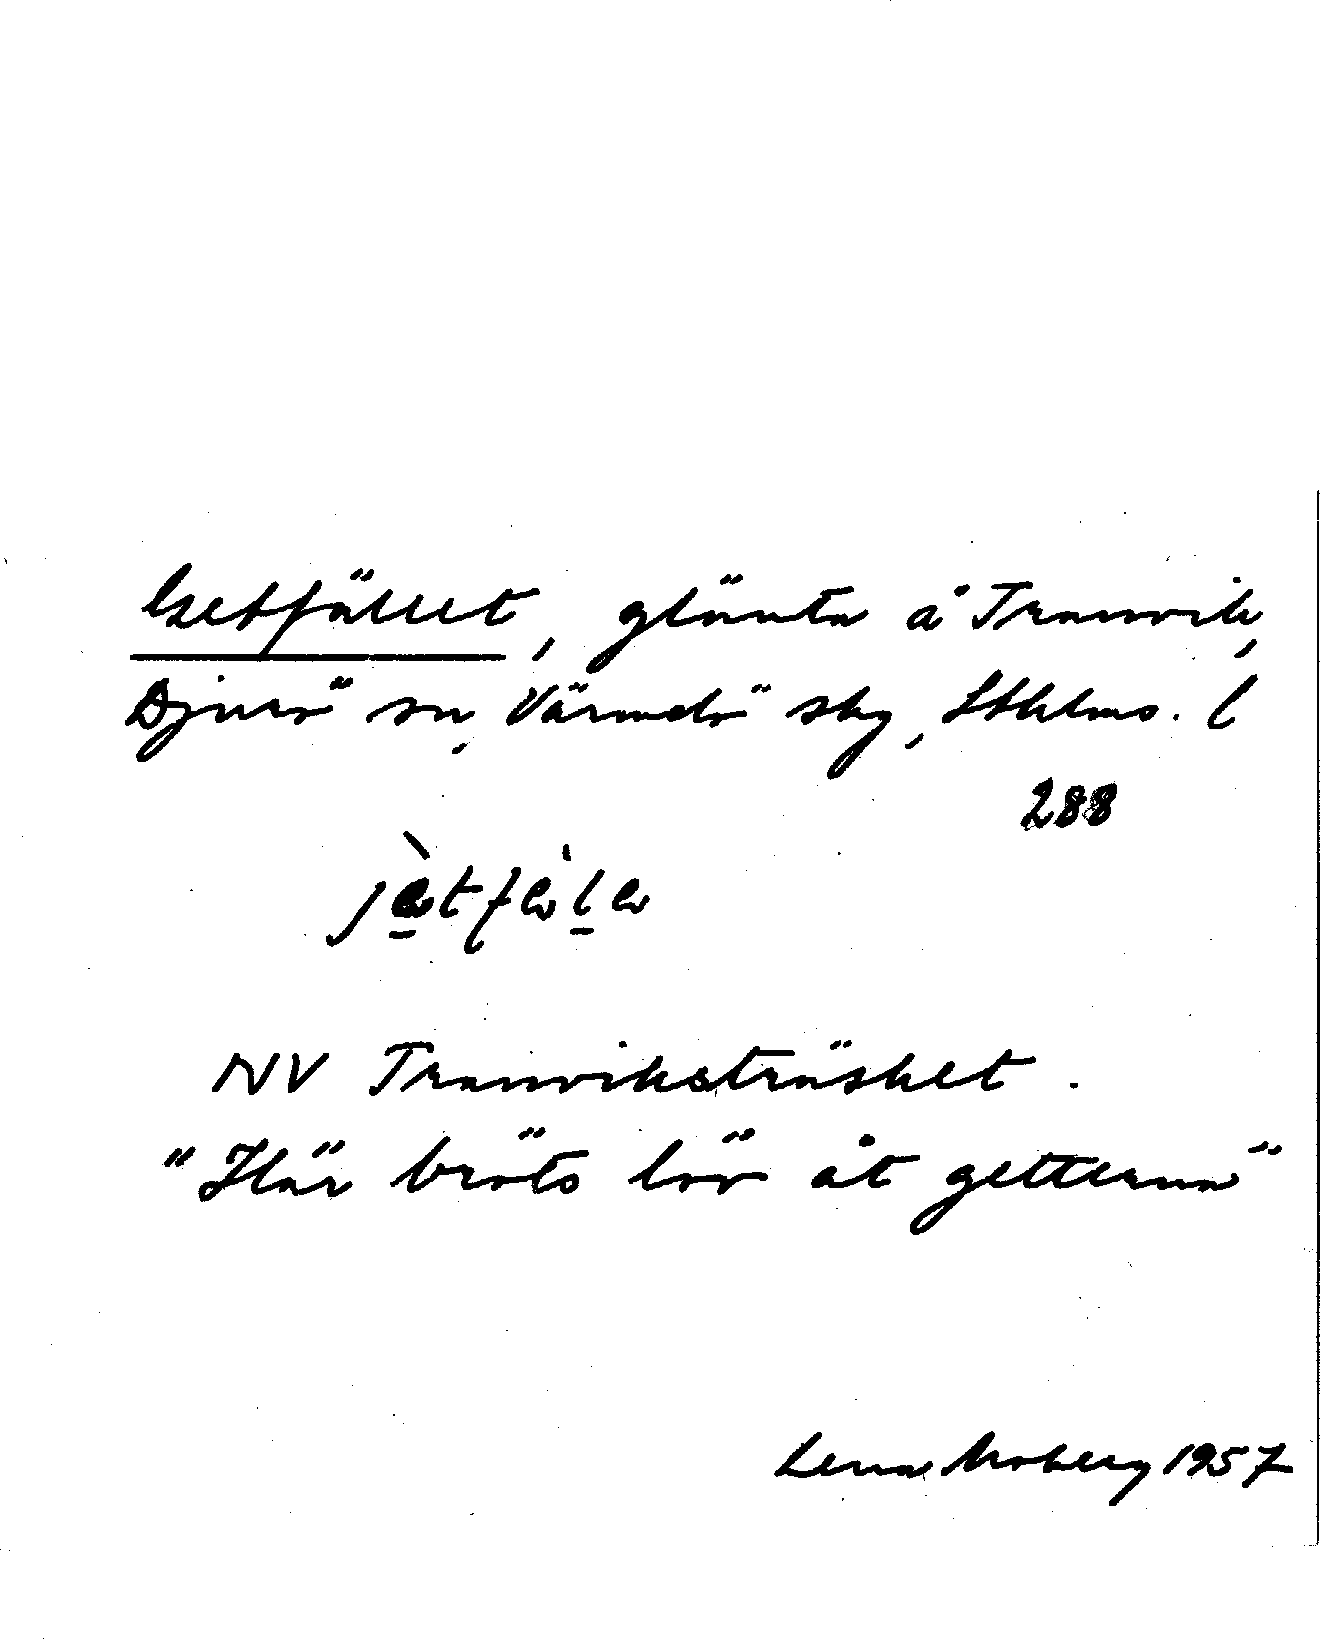 Getfället, glänta å Tranvik,
Djurö sn, Värmdö skg, Sthlms. l
288
jètfὲla
NV Tranviksträsket.
"Här bröts löv åt getterna"
Lena Moberg 1957